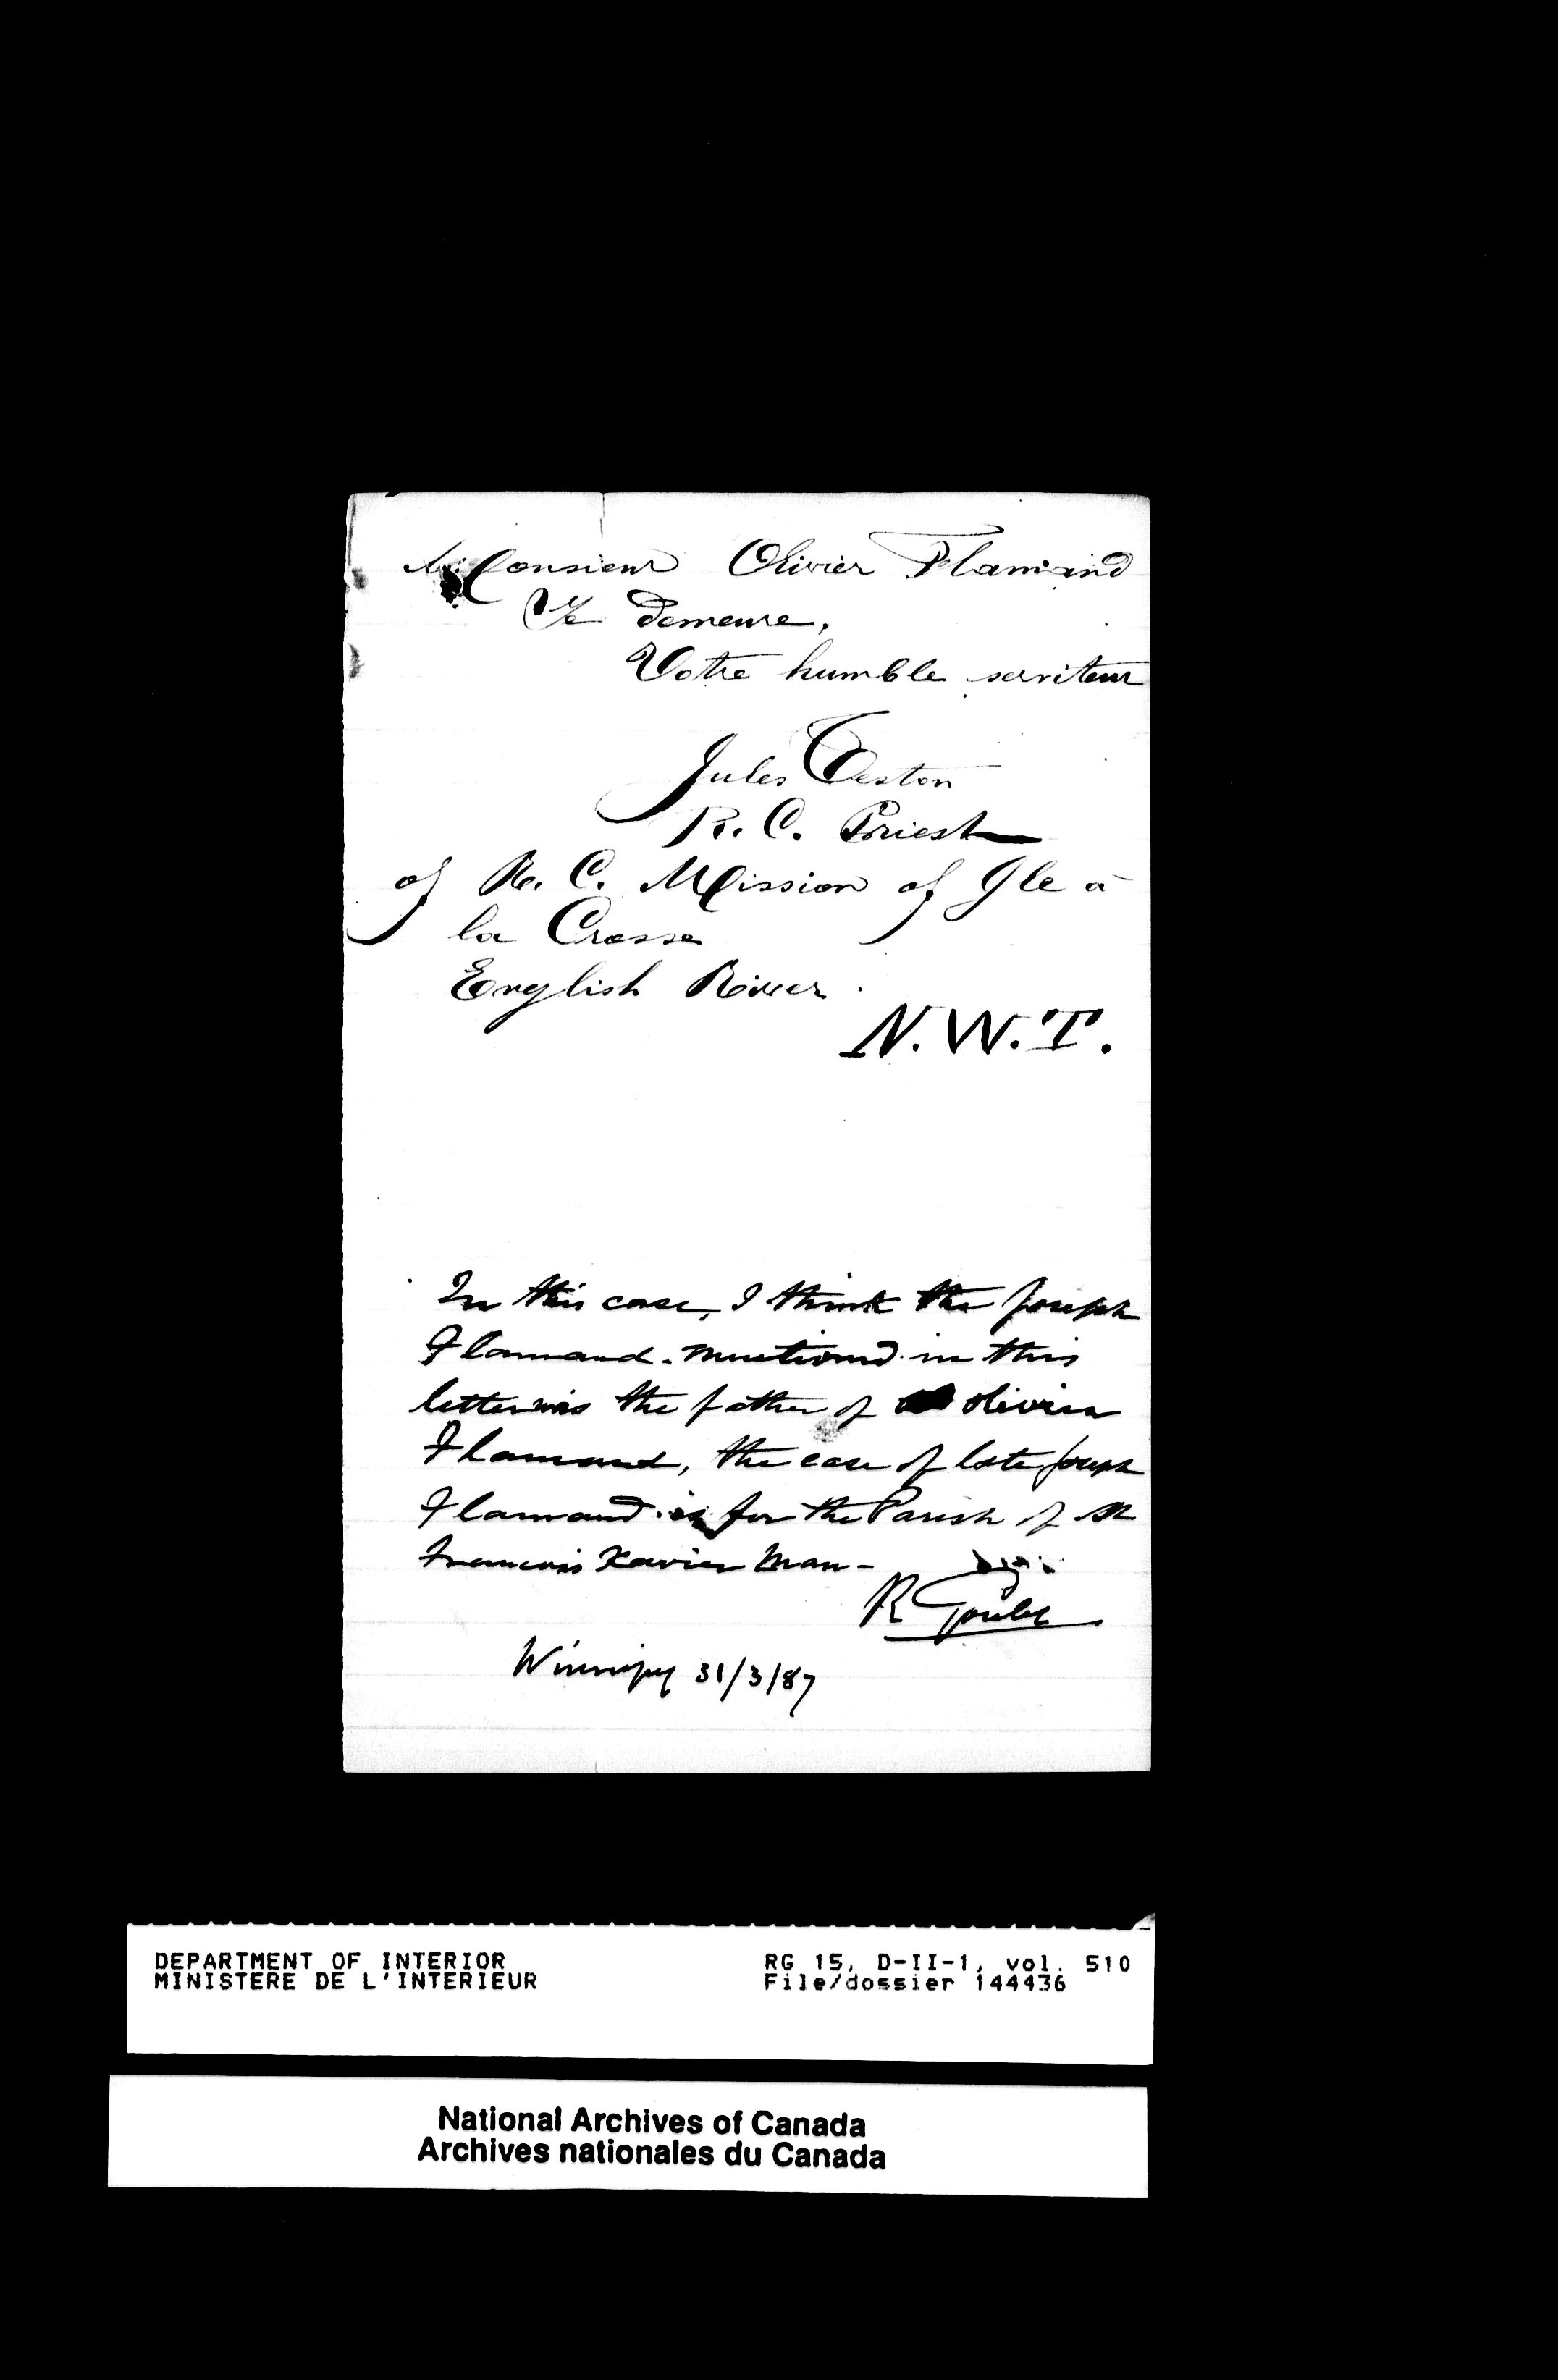 Monsieur Olivier Flamand
Je demeure,
Votre humble serviteur
Jules Teston
R. C. Priest
of R. C. Mission of Ile à
la Crosse
English River.
N.W.T.
In this case, I think the Joseph
Flamand. mentioned in this
letter was the father of Olivier
Flamand, the case of late Joseph
Flamand is for the Parish of St
Francois Xavier Man-
R Goulet
Winnipeg 31/3/87
DEPARTMENT OF INTERIOR
MINISTERE DE L'INTERIEUR
RG 15, D-II-1, vol. 510
File/dossier 144436
National Archives of Canada
Archives nationales du Canada